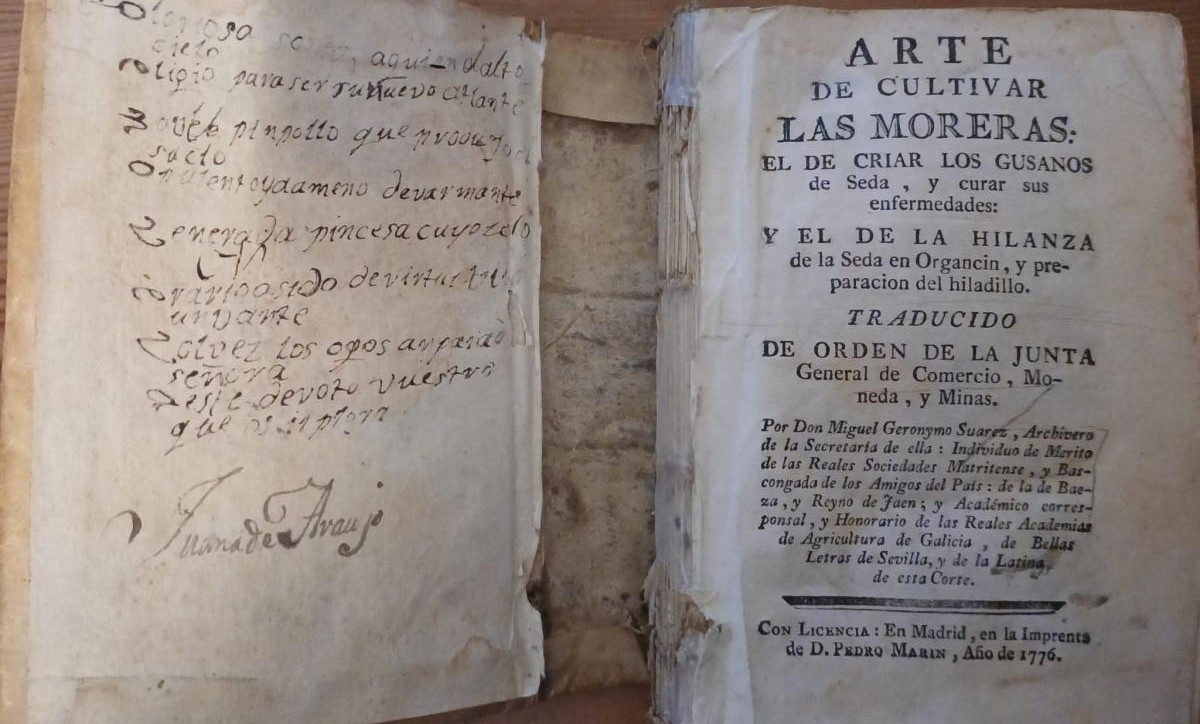 Gloriosa santa, a quien el alto
cielo
eligio para ser su nuevo atlante
pinpollo que produjo el
suelo
opulento y dameno de
Venerada pincesa cuyo zelo
a sido de virtud
Volvez los ojos
señora
a este devoto vuestro
que os
Juana de Araujo
ARTE
DE CULTIVAR
LAS MORERAS:
EL DE CRIAR LOS GUSANOS
de Seda, y curar sus
enfermedades:
Y EL DE LA HILANZA
de la Seda en Organcin, y pre-
paracion del hiladillo.
TRADUCIDO
DE ORDEN DE LA JUNTA
General de Comercio, Mo-
neda, y Minas.
Por Don Miguel Geronymo Suarez, Archivero
de la Secretaría de ella: Individuo de Merito
de las Reales Sociedades Matritense, y Bas-
congada de los Amigos del País: de la de Bae-
za, y Reyno de Jaen; y Académico corres-
ponsal, y Honorario de las Reales Academias
de Agricultura de Galicia, de Bellas
Letras de Sevilla, y de la Latina,
de esta Corte.
CON LICENCIA: En Madrid, en la Imprenta
de D. PEDRO MARIN, Año de 1776.